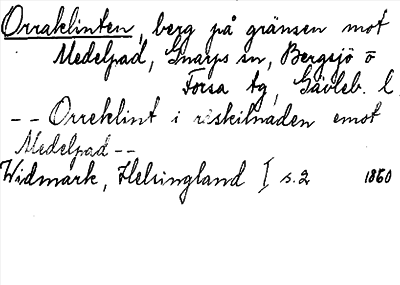 Orraklinten, berg på gränsen mot
Medelpad, Gnarps sn, Bergsjö o
Forsa tg, Gävleb. l
-- Orreklint i råskilnaden emot
Medelpad --
Widmark, Helsingland I s. 2 1860